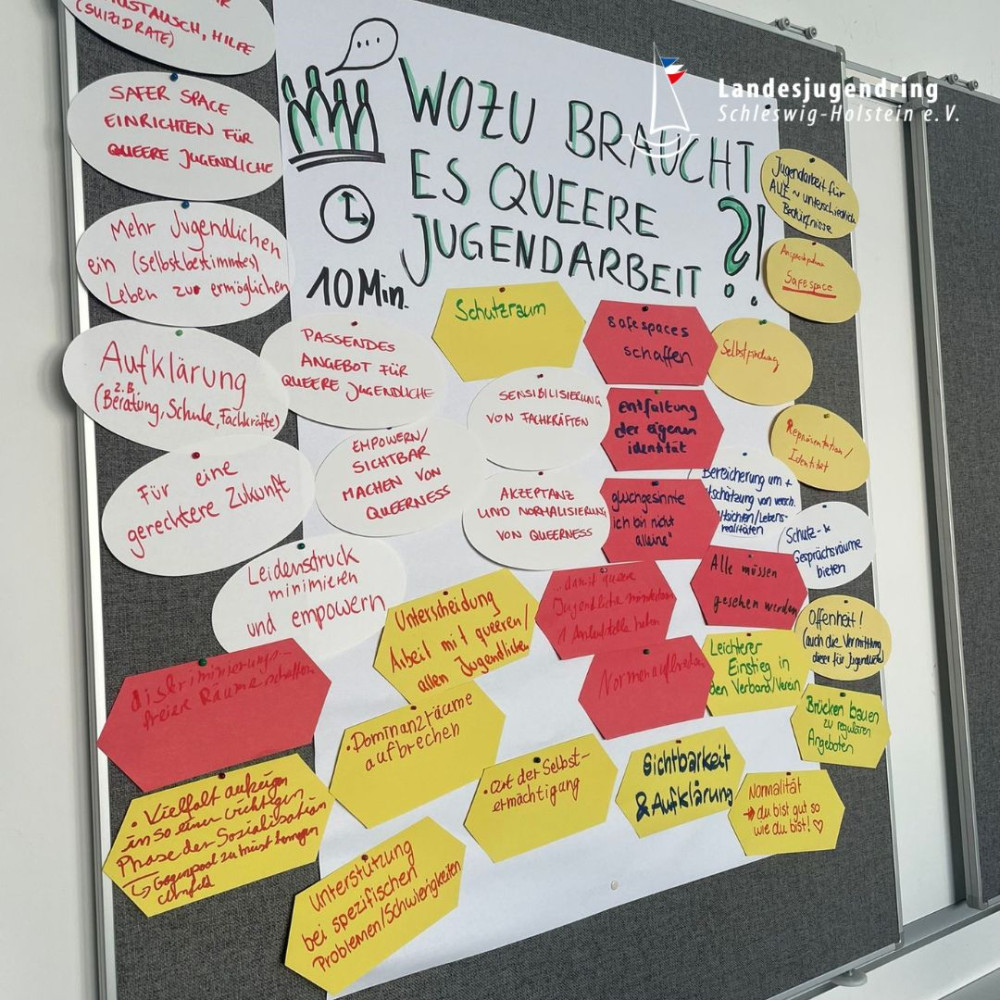 AUSTAUSCH, HILFE
(SUIZIDRATE)
Landesjugendring
Schleswig-Holstein e.V.
WOZU BRAUCHT
ES QUEERE
JUGENDARBEIT ?!
10 Min.
SAFER SPACE
EINRICHTEN FÜR
QUEERE JUGENDLICHE
Mehr Jugendlichen
ein (selbstbestimmtes)
Leben zu ermöglichen
Aufklärung
(z.B. Beratung, Schule, Fachkräfte)
Für eine
gerechtere Zukunft
PASSENDES
ANGEBOT FÜR
QUEERE JUGENDLICHE
EMPOWERN/
SICHTBAR
MACHEN VON
QUEERNESS
Leidensdruck
minimieren
und empowern
Schutzraum
SENSIBILISIERUNG
VON FACHKRÄFTEN
AKZEPTANZ
UND NORMALISIERUNG
VON QUEERNESS
safespaces
schaffen
entfaltung
der eigenen
identität
gleichgesinnte
"ich bin nicht
alleine"
Jugendarbeit für
ALLE ~ unterschiedlich
Bedürfnisse
Safespace
Repräsentation/
Identität
Bereicherung um +
von versch.
Schutz- &
Gesprächsräume
bieten
Alle müssen
gesehen werden
Offenheit!
(auch die Vermittlung
dieser für Jugendliche)
damit queere
Jugendliche mindestens
1 Anlaufstelle haben
Normen aufbrechen
Unterscheidung
Arbeit mit queeren/
allen Jugendlichen
Leichterer
Einstieg in
den Verband/Verein
Brücken bauen
zu regulären
Angeboten
diskriminierungs-
freie Räume schaffen
• Dominanzräume
aufbrechen
• Ort der Selbst-
ermächtigung
Sichtbarkeit
& Aufklärung
Normalität
→ du bist gut so
wie du bist! ♡
• Vielfalt aufzeigen
in so einer wichtigen
Phase der Sozialisation
↳ Gegenpool zu
Unterstützung
bei spezifischen
Problemen/Schwierigkeiten